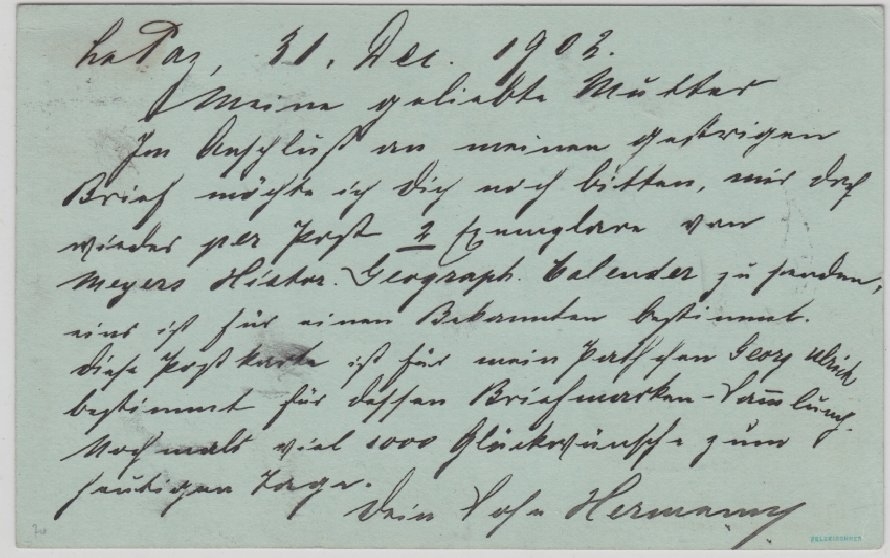 La Paz, 31. Dec. 1902.
Meine geliebte Mutter
Im Anschluß an meinen gestrigen
Brief möchte ich Dich noch bitten, mir doch
wieder per Post 2 Exemplare von
Meyers Histor. Geograph. Calender zu senden,
eins ist für einen Bekannten bestimmt.
Diese Postkarte ist für mein Pathchen Georg Ulrich
bestimmt für dessen Briefmarken-Sam̅lung.
Nochmals viel 1000 Glückwünsche zum
heutigen Tage.
Dein Sohn Hermann